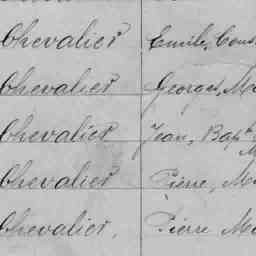 Chevalier Emile, Cons
Chevalier Georges, Ma
Chevalier Jean, Bapt
M
Chevalier Pierre, Ma
Chevalier. Pierre Ma